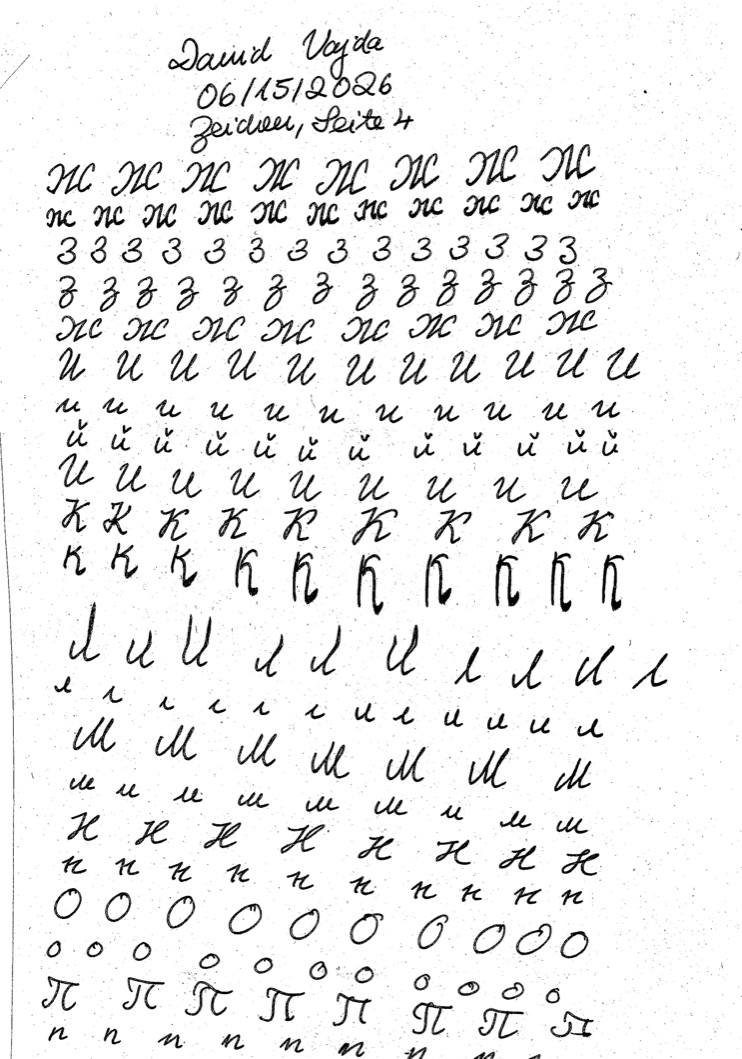 David Vajda
06/15/2026
Zeichen, Seite 4
Ж Ж Ж Ж Ж Ж Ж Ж
ж ж ж ж ж ж ж ж ж ж
З З З З З З З З З З З З З З
з з з з з з з з з з з з з
Ж Ж Ж Ж Ж Ж Ж Ж
И И И И И И И И И И И
и и и и и и и и и и и
й й й й й й й й й й й й
И И И И И И И И И
К К К К К К К К К
к к к к к к к к к к
Л Л Л Л Л Л Л Л Л Л
л л л л л л л л л л л л
М М М М М М М
м м м м м м м м м
Н Н Н Н Н Н Н Н
н н н н н н н н н н
О О О О О О О О О О
о о о о о о о о о о о
П П П П П П П П
п п п п п п п п п